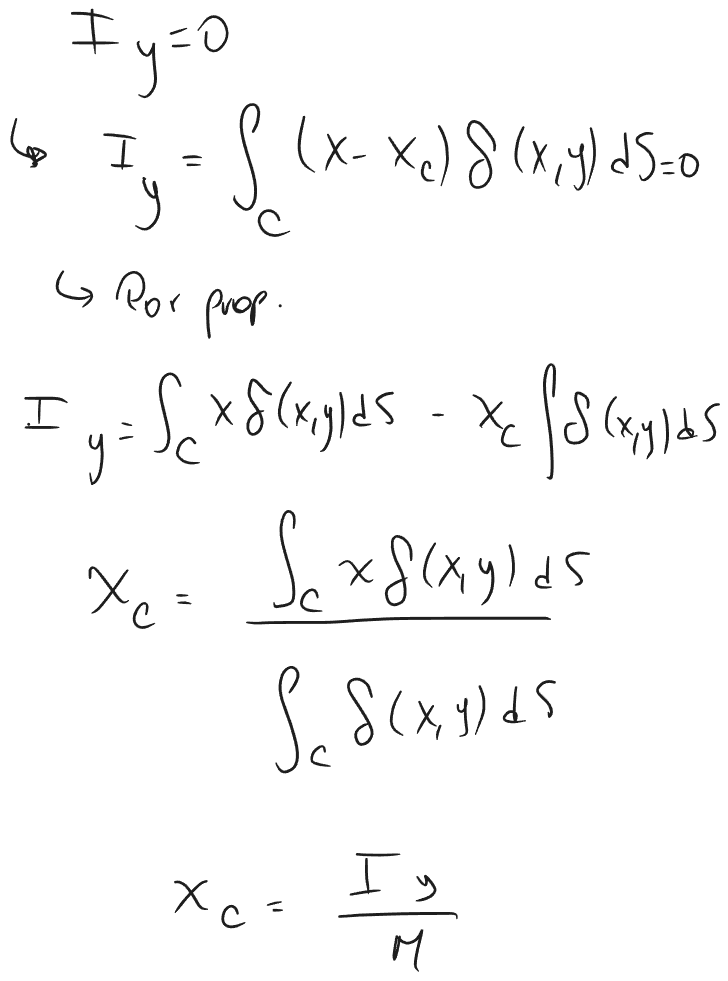 I y = 0
↳ I y = ∫_C (x - x_c) δ(x,y) dS = 0
↳ Por prop.
I y = ∫_C x δ(x,y) dS - x_c ∫ δ(x,y) dS
x_c = ∫_C x δ(x,y) dS
∫_C δ(x,y) dS
x_c = I y
M